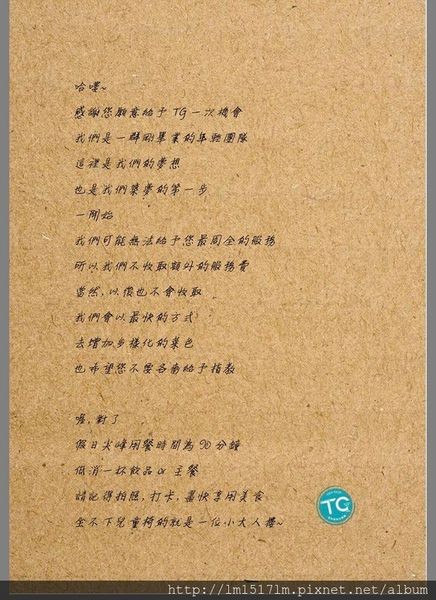 哈嘍~
感謝您願意給予 TG 一次機會
我們是一群剛畢業的年輕團隊
這裡是我們的夢想
也是我們築夢的第一步
一開始
我們可能無法給予您最周全的服務
所以我們不收取額外的服務費
當然,以後也不會收取
我們會以最快的方式
去增加多樣化的菜色
也希望您不要吝嗇給予指教
喔,對了
假日尖峰用餐時間為 90 分鐘
低消一杯飲品 or 主餐
請記得拍照,打卡,盡快享用美食
坐不下兒童椅的就是一位小大人摟~
TG
http://lm1517lm.pixnet.net/album